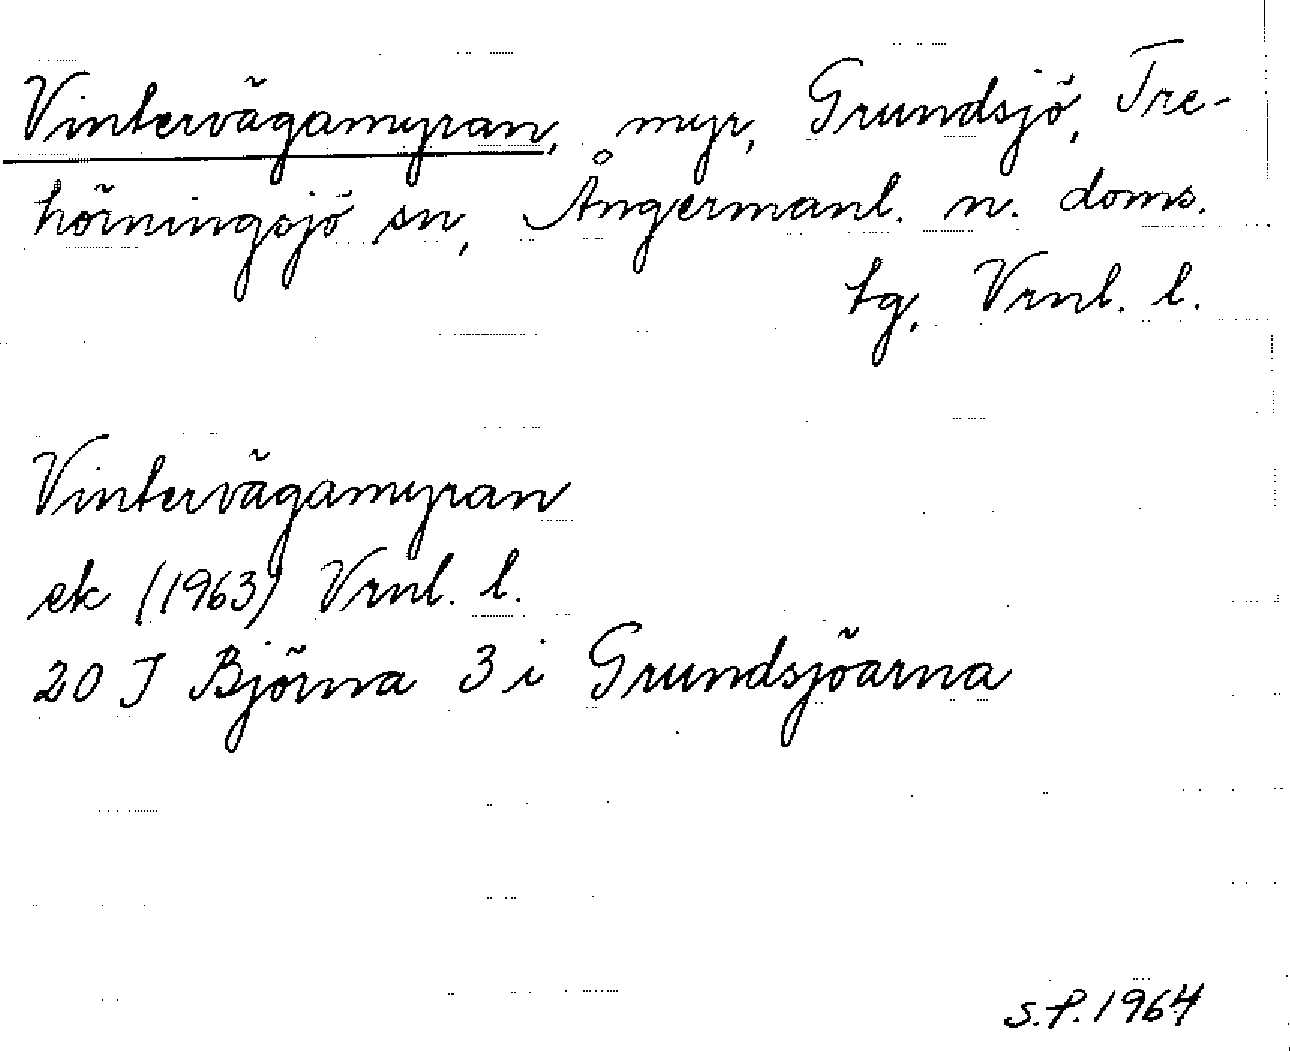 Vintervägamyran, myr, Grundsjö, Tre-
hörningsjö sn, Ångermanl. n. doms.
tg, Vrnl. l.
Vintervägamyran
ek (1963) Vrnl. l.
20 J Björna 3 i Grundsjöarna
S.P. 1964